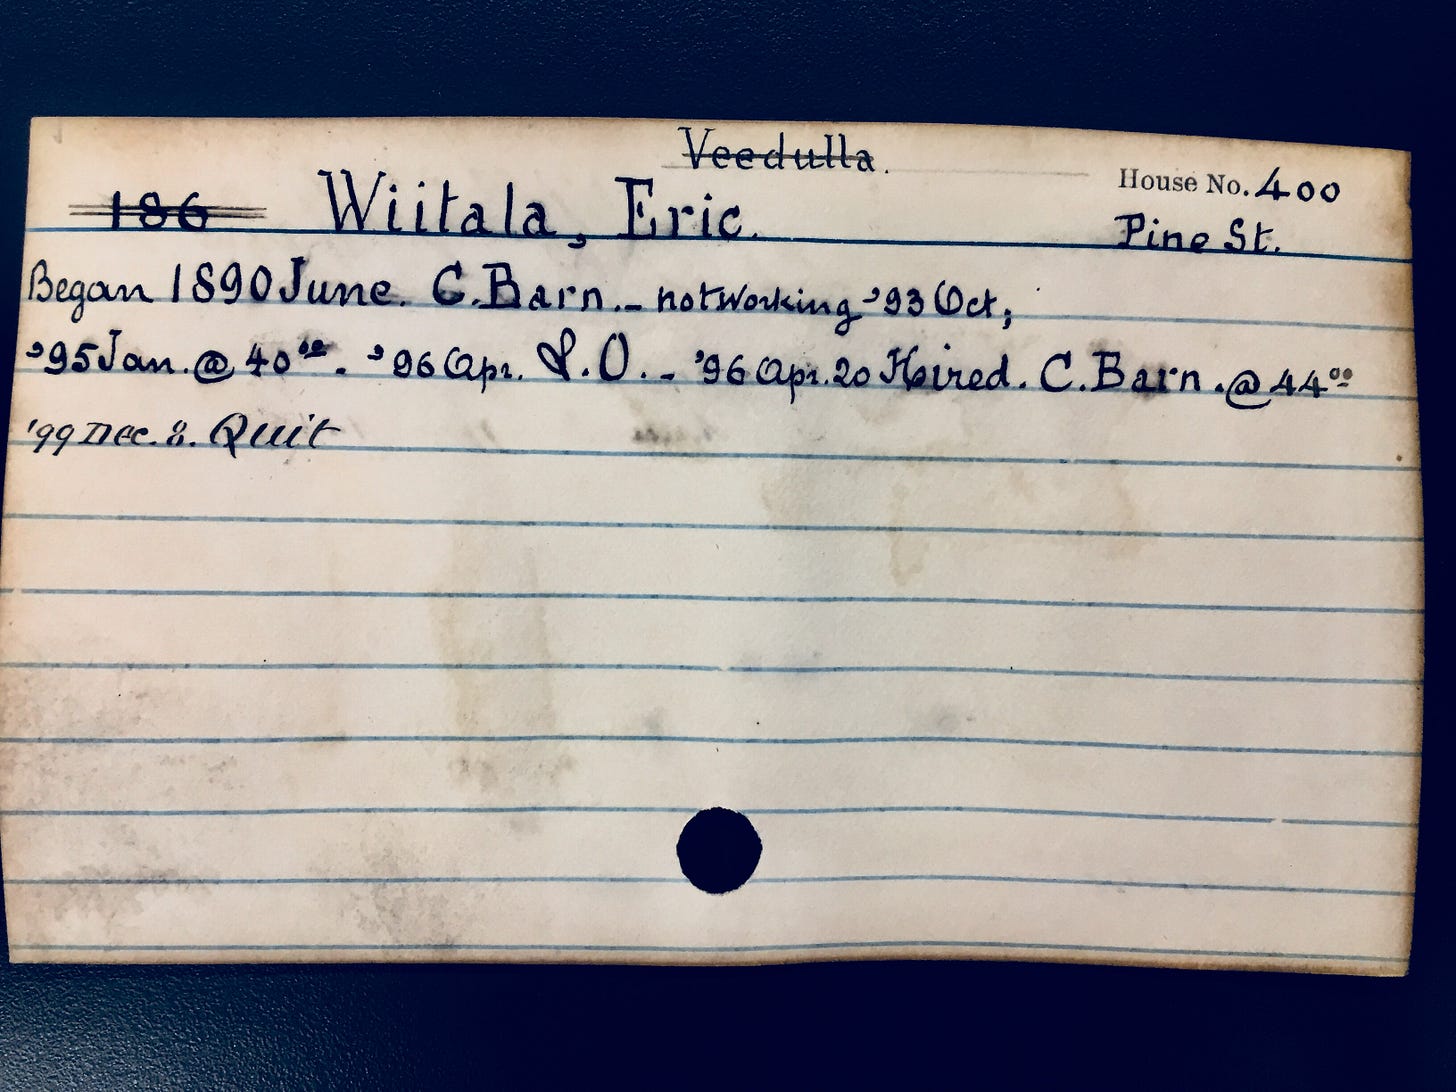 Veedulla.
House No. 400
186 Wiitala, Eric.
Pine St.
Began 1890 June. C. Barn. - not working '93 Oct;
'95 Jan. @ 40⁰⁰. '96 Apr. L.O. - '96 Apr. 20 Hired. C. Barn. @ 44⁰⁰
'99 Dec. 8. Quit